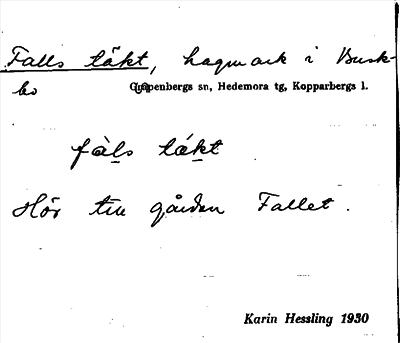 Falls täkt, hagmark i Busk-
bo Garpenbergs sn, Hedemora tg, Kopparbergs l.
fàls tákt
Hör till gården Fallet.
Karin Hessling 1930